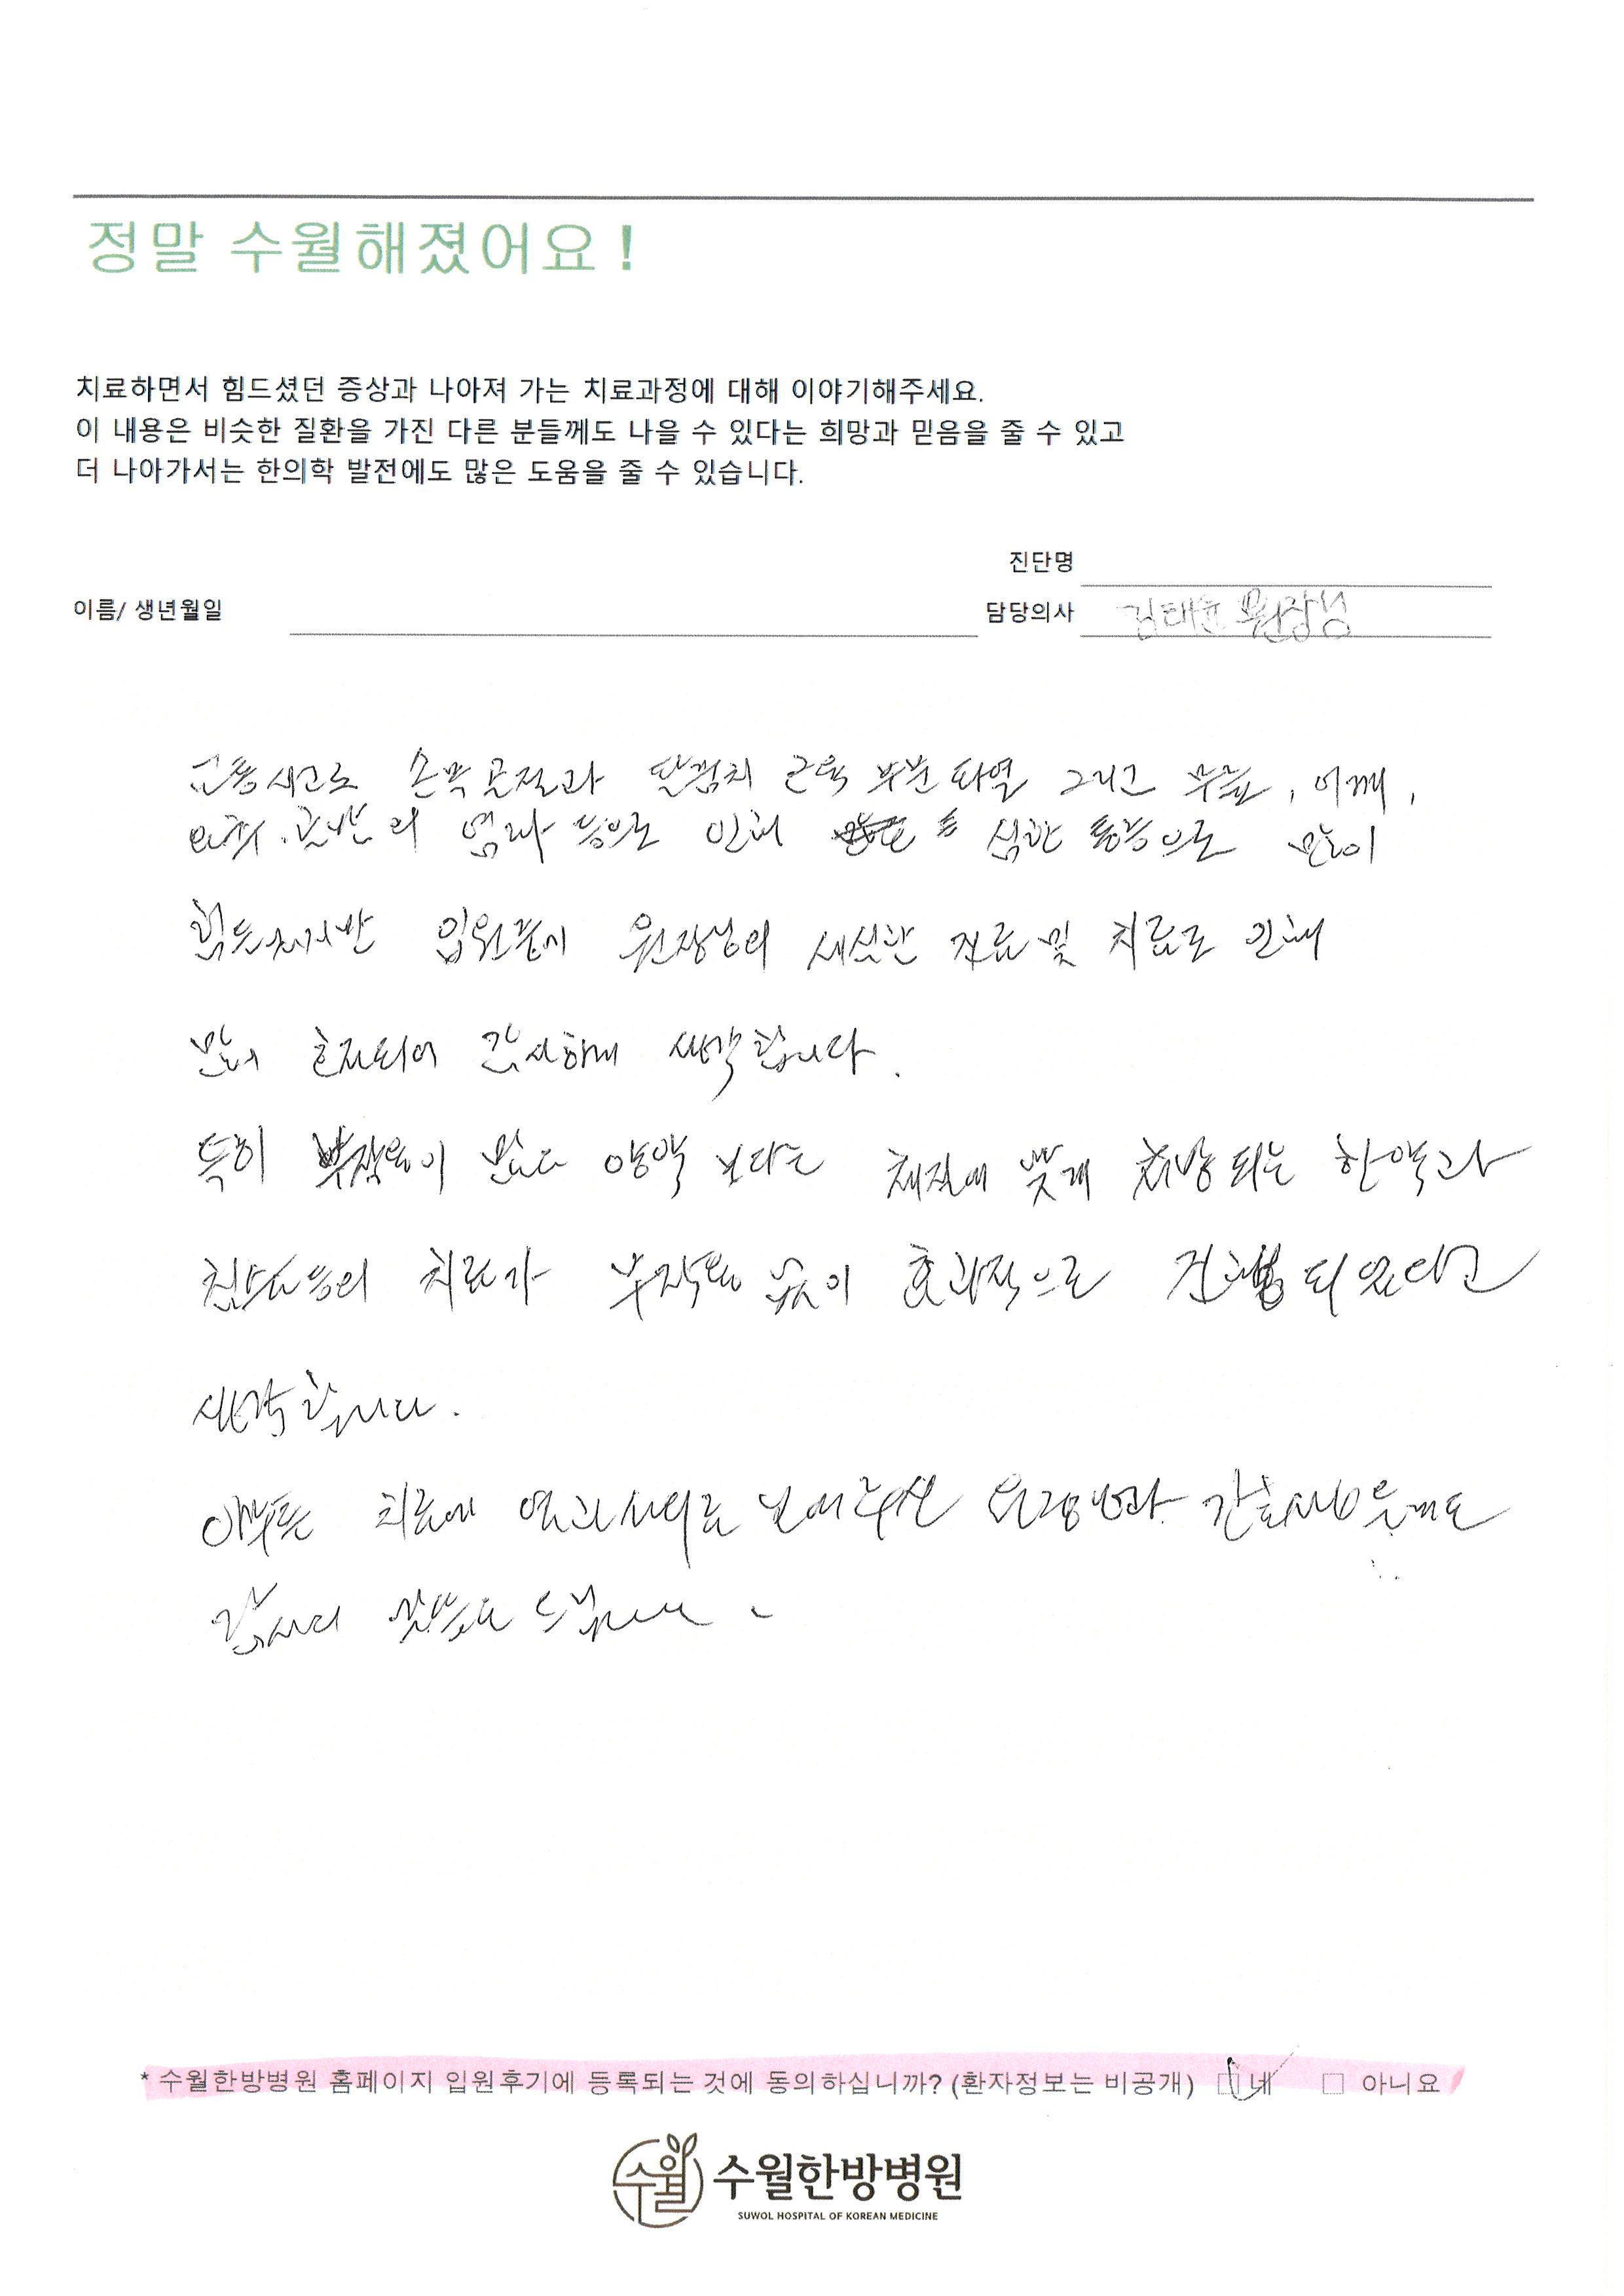 정말 수월해졌어요!
치료하면서 힘드셨던 증상과 나아져 가는 치료과정에 대해 이야기해주세요.
이 내용은 비슷한 질환을 가진 다른 분들께도 나을 수 있다는 희망과 믿음을 줄 수 있고
더 나아가서는 한의학 발전에도 많은 도움을 줄 수 있습니다.
진단명
이름/ 생년월일
담당의사 김태윤 원장님
교통사고로 손목골절과 팔꿈치 근육 부분파열 그리고 무릎, 어깨,
요추.골반의 염좌 등으로 인해 심한 통증으로 많이
힘들었지만 입원중에 원장님의 세심한 진료 및 치료로 인해
많이 호전되어 감사하게 생각합니다.
특히 부작용이 많은 양약 보다는 체질에 맞게 처방되는 한약과
침술등의 치료가 부작용 없이 효과적으로 진행되었다고
생각합니다.
아무튼 치료에 열과 성의를 보여주신 원장님과 간호사님들께도
감사의 말씀을 드립니다.
* 수월한방병원 홈페이지 입원후기에 등록되는 것에 동의하십니까? (환자정보는 비공개) 네 아니요
수월 수월한방병원
SUWOL HOSPITAL OF KOREAN MEDICINE